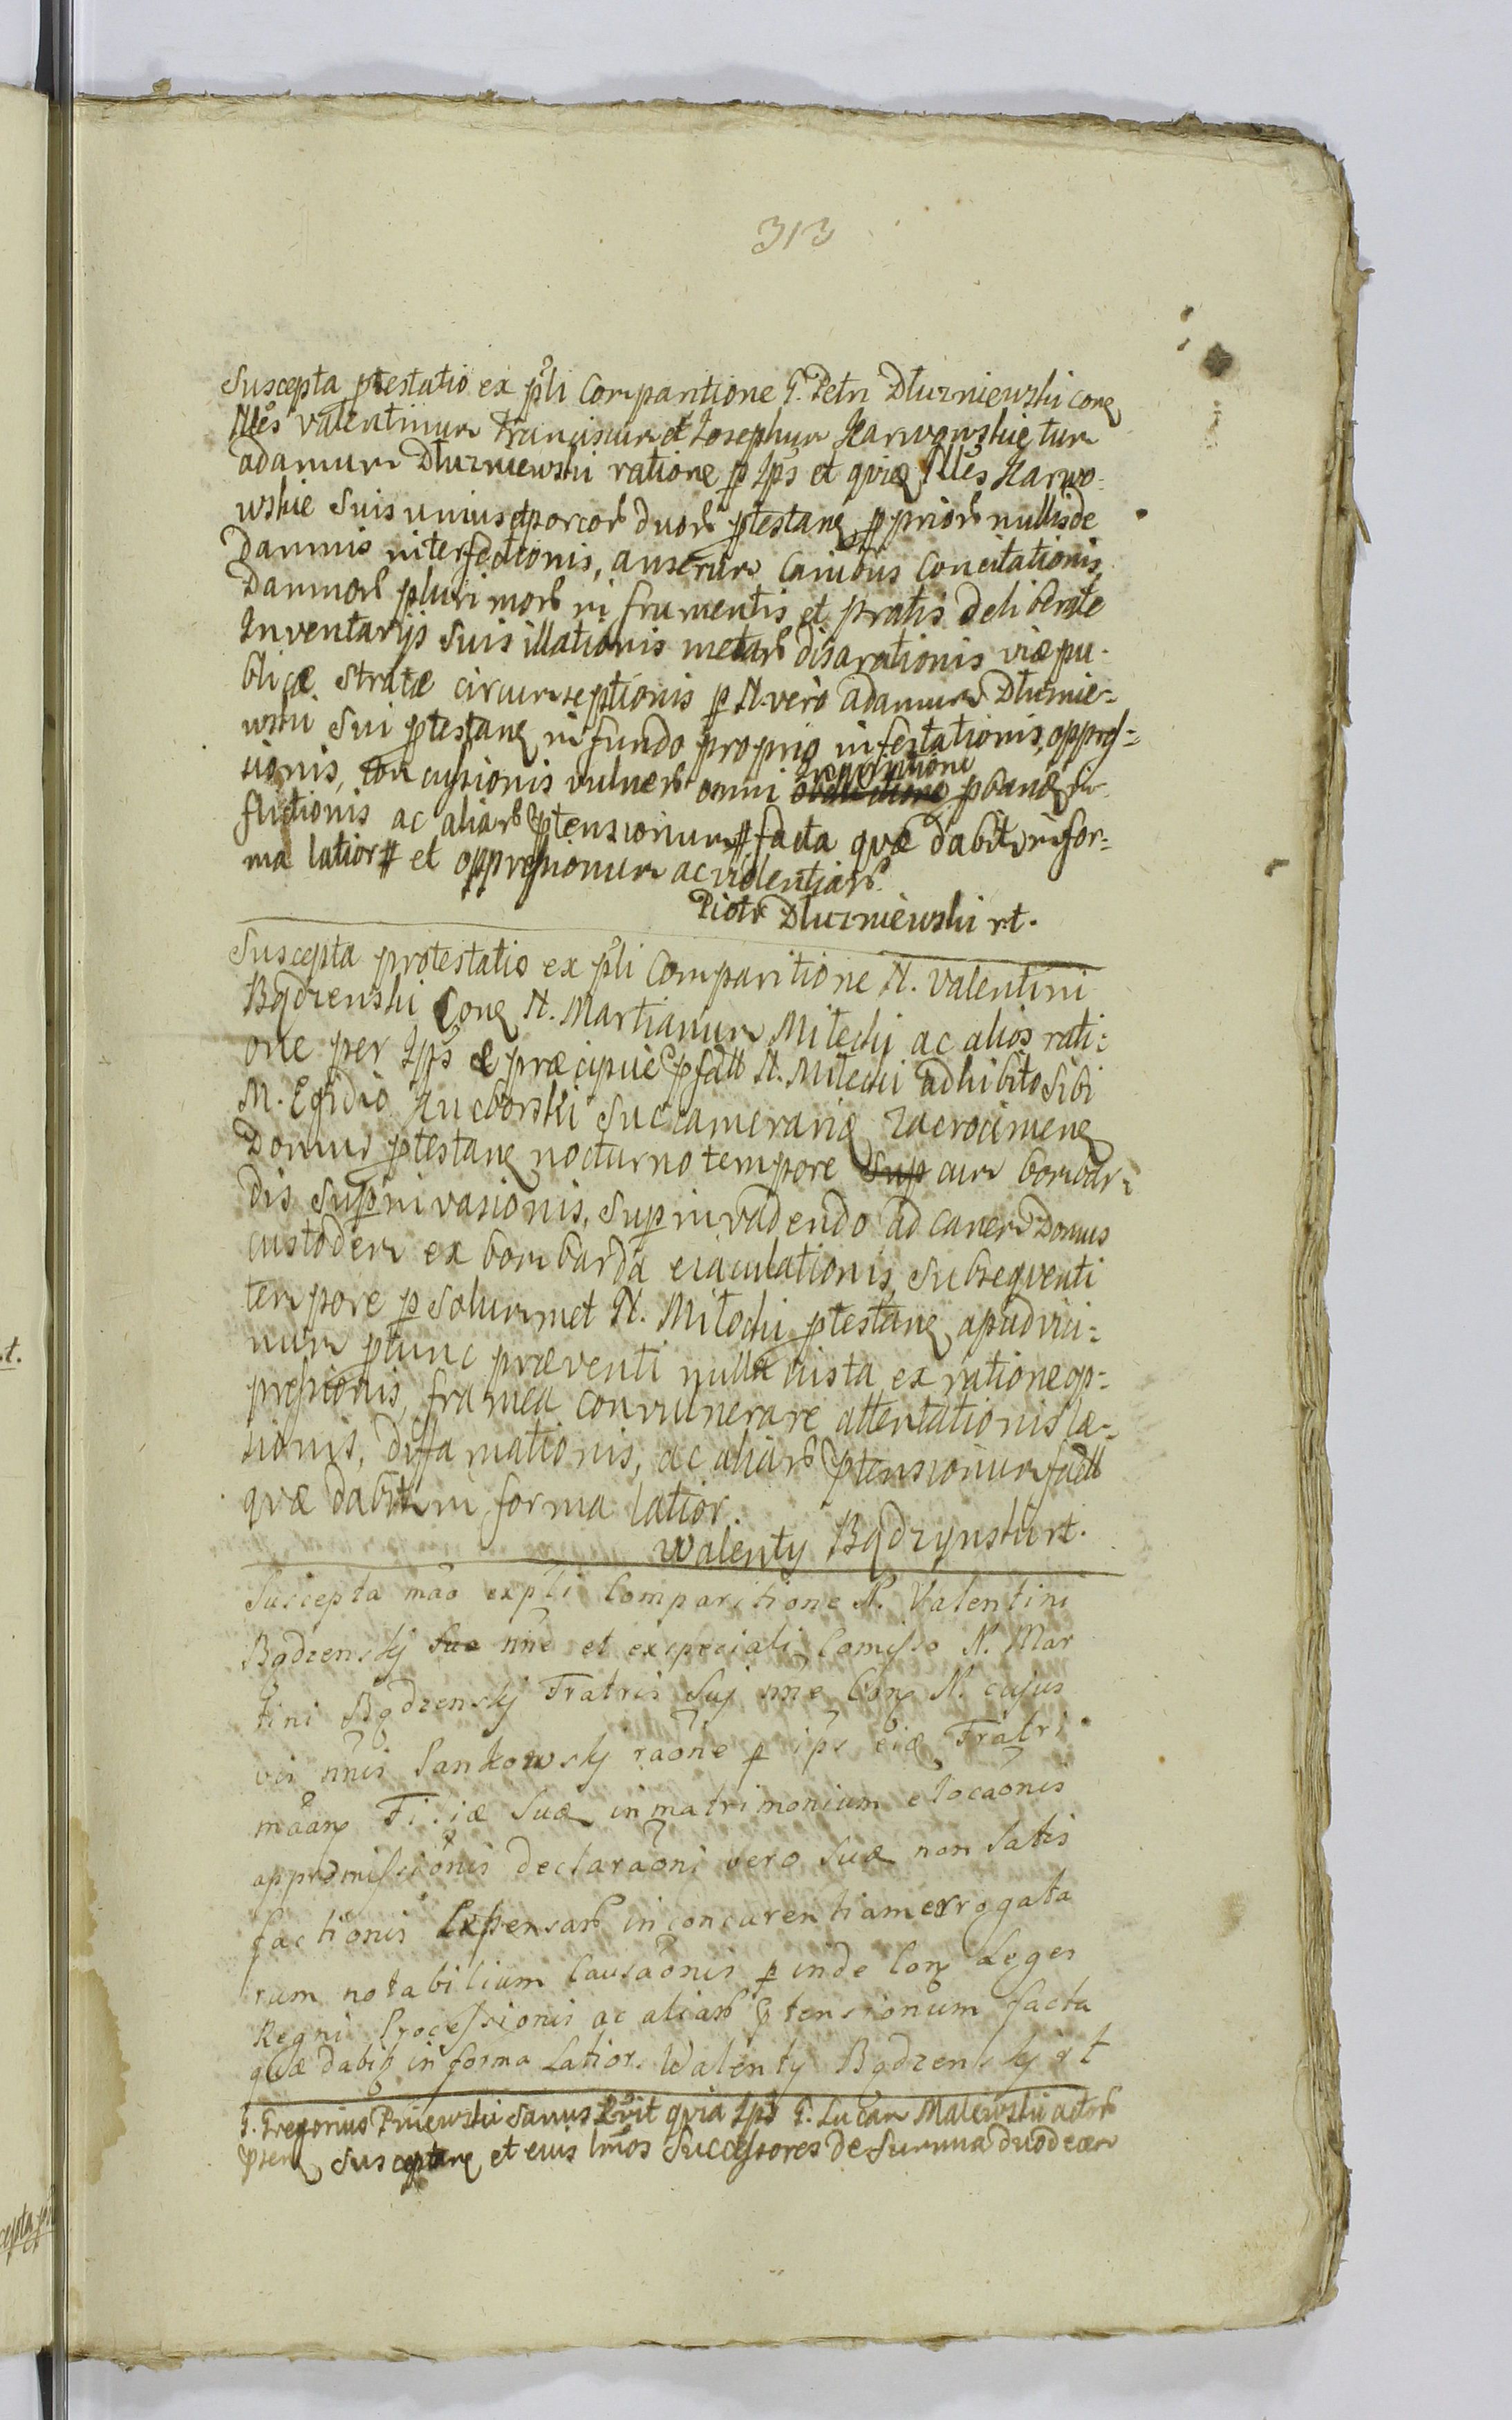 313
Suscepta ptestatio ex pli Comparitione G. Petri Dłuzniewski cone
Nles Valentinum Franciscum et Josephum Karwowskie tum
adamum Dłuzniewski ratione p Ips et qviæ Nles Karwo-
wskie suis unius et porcor duor ptestane pprior nullis de
Damnis interfectionis, anserum Canibus Concitationis
Damnor plurimor in frumentis et pratis deliberate
Inventarijs suis illationis metar disarationis viæ pu-
blicæ stratæ circumseptionis p N. vero adamum Dłuznie-
wski sui ptestane in fundo proprio infestationis, oppres-
sionis, concussionis vulner omni Inqvisitione pbane in-
flictionis ac aliar ptensionum facta qvæ dabit in for-
ma latior et oppressionum ac violentiar
Piotr Dłuzniewski rt.
Suscepta protestatio ex pli Comparitione N. Valentini
Bądzenski Cone N. Martianum Milecki ac alios rati-
one per Ips et præcipue p fatt N. Milecki adhibito sibi
M. Egidio Kucborski succamerarie Zacrocimene
Domus ptestane nocturno tempore sup cum bombar-
dis supinvasionis, supinvadendo ad canem Domus
custodem ex bombarda eiaculationis, subseqventi
tempore p solummet N. Milocki ptestane apud vici-
num ptunc præventi nulla iusta ex ratione op-
pressionis, framea convulnerare attentationis læ-
sionis, diffamationis, ac aliar ptensionum fatt
qvæ dabit in forma latior.
Walenty Bądzynski rt.
Suscepta mao ex pli Comparitione N. Valentini
Bądzenskj suo nne et ex speciali Comisso N. Mar
tini Bądzenskj Fratris suj nne Cone N. cujus
vis nnis Sankowskj raone p ips eiæ Fratri
maane Filiæ suæ in matrimonium elocaonis
appromissionis declaraoni vero suæ non satis
factionis Expensar in concurentiam errogata
rum notabilium Causaonis p inde Cone Leges
Regni Processionis ac aliar ptensionum facta
quæ dabit in forma latiori Walenty Bądzenskj rt
G. Gregorius Pniewski sanus Rvit qvia Ips G. Lucam Malewski actor
psen susceptane et euis lmos Successores de summa duodecem